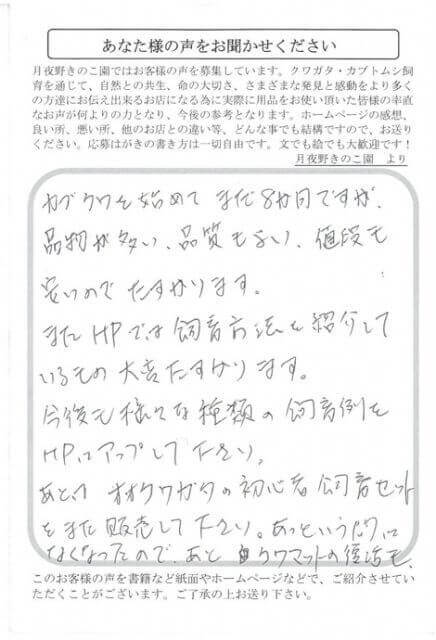 あなた様の声をお聞かせください
月夜野きのこ園ではお客様の声を募集しています。クワガタ・カブトムシ飼
育を通じて、自然との共生、命の大切さ、さまざまな発見と感動をより多く
の方達にお伝え出来るお店になる為に実際に用品をお使い頂いた皆様の率直
なお声が何よりの力となり、今後の参考となります。ホームページの感想、
良い所、悪い所、他のお店との違い等、どんな事でも結構ですので、お送り
ください。応募はがきの書き方は一切自由です。文でも絵でも大歓迎です！
月夜野きのこ園　より
カブクワを始めて まだ8か月ですが、
品物が多い、品質も良い、値段も
安いので たすかります。
またHPでは飼育方法を紹介して
いるもの大変たすかります。
今後も様々な種類の飼育例を
HPにアップして下さい。
あと オオクワガタの初心者飼育セット
をまた販売して下さい。あっという間に
なくなったので、あと クワマットの復活も、
このお客様の声を書籍など紙面やホームページなどで、ご紹介させてい
ただくことがございます。ご了承の上お送り下さい。